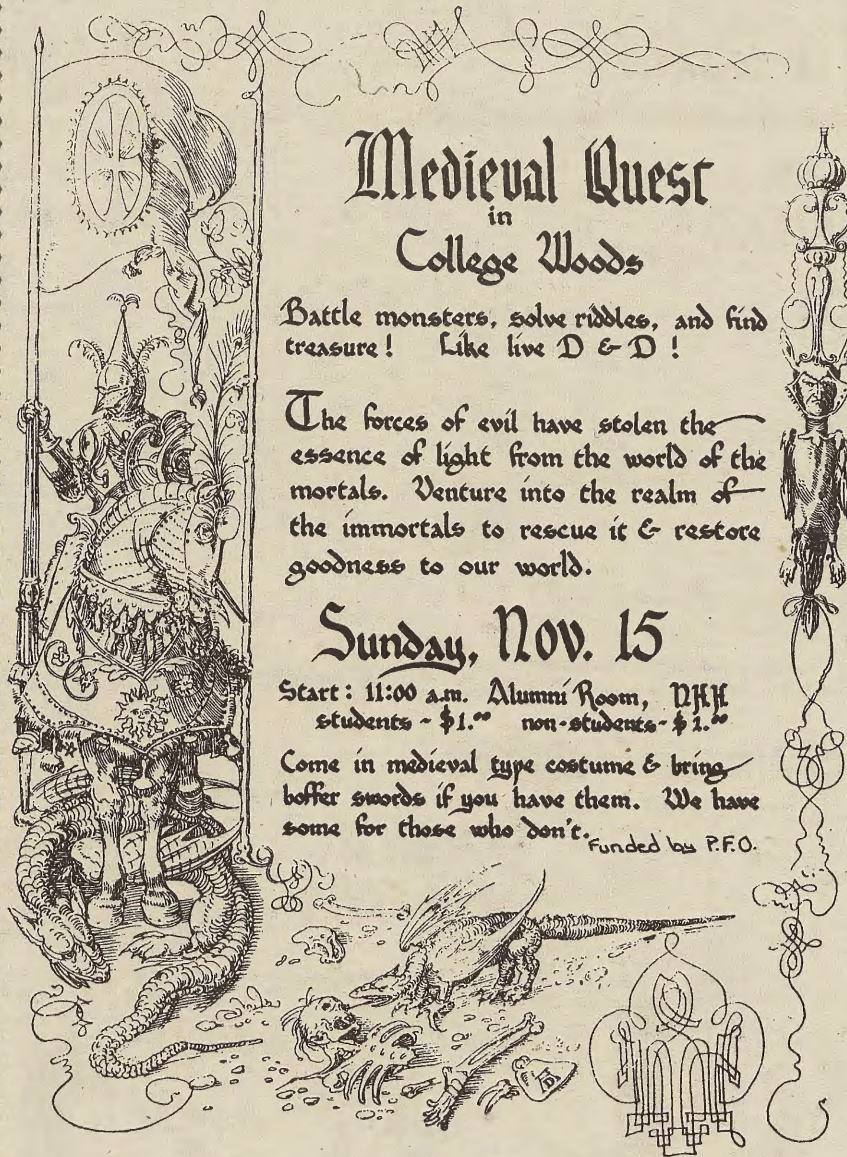 Medieval Quest
in
College Woods
Battle monsters, solve riddles, and find
treasure! Like live D & D !
The forces of evil have stolen the
essence of light from the world of the
mortals. Venture into the realm of
the immortals to rescue it & restore
goodness to our world.
Sunday, Nov. 15
Start: 11:00 a.m. Alumni Room, NHH
students - $1.00 non-students - $2.00
Come in medieval type costume & bring
boffer swords if you have them. We have
some for those who don't.
Funded by P.F.O.